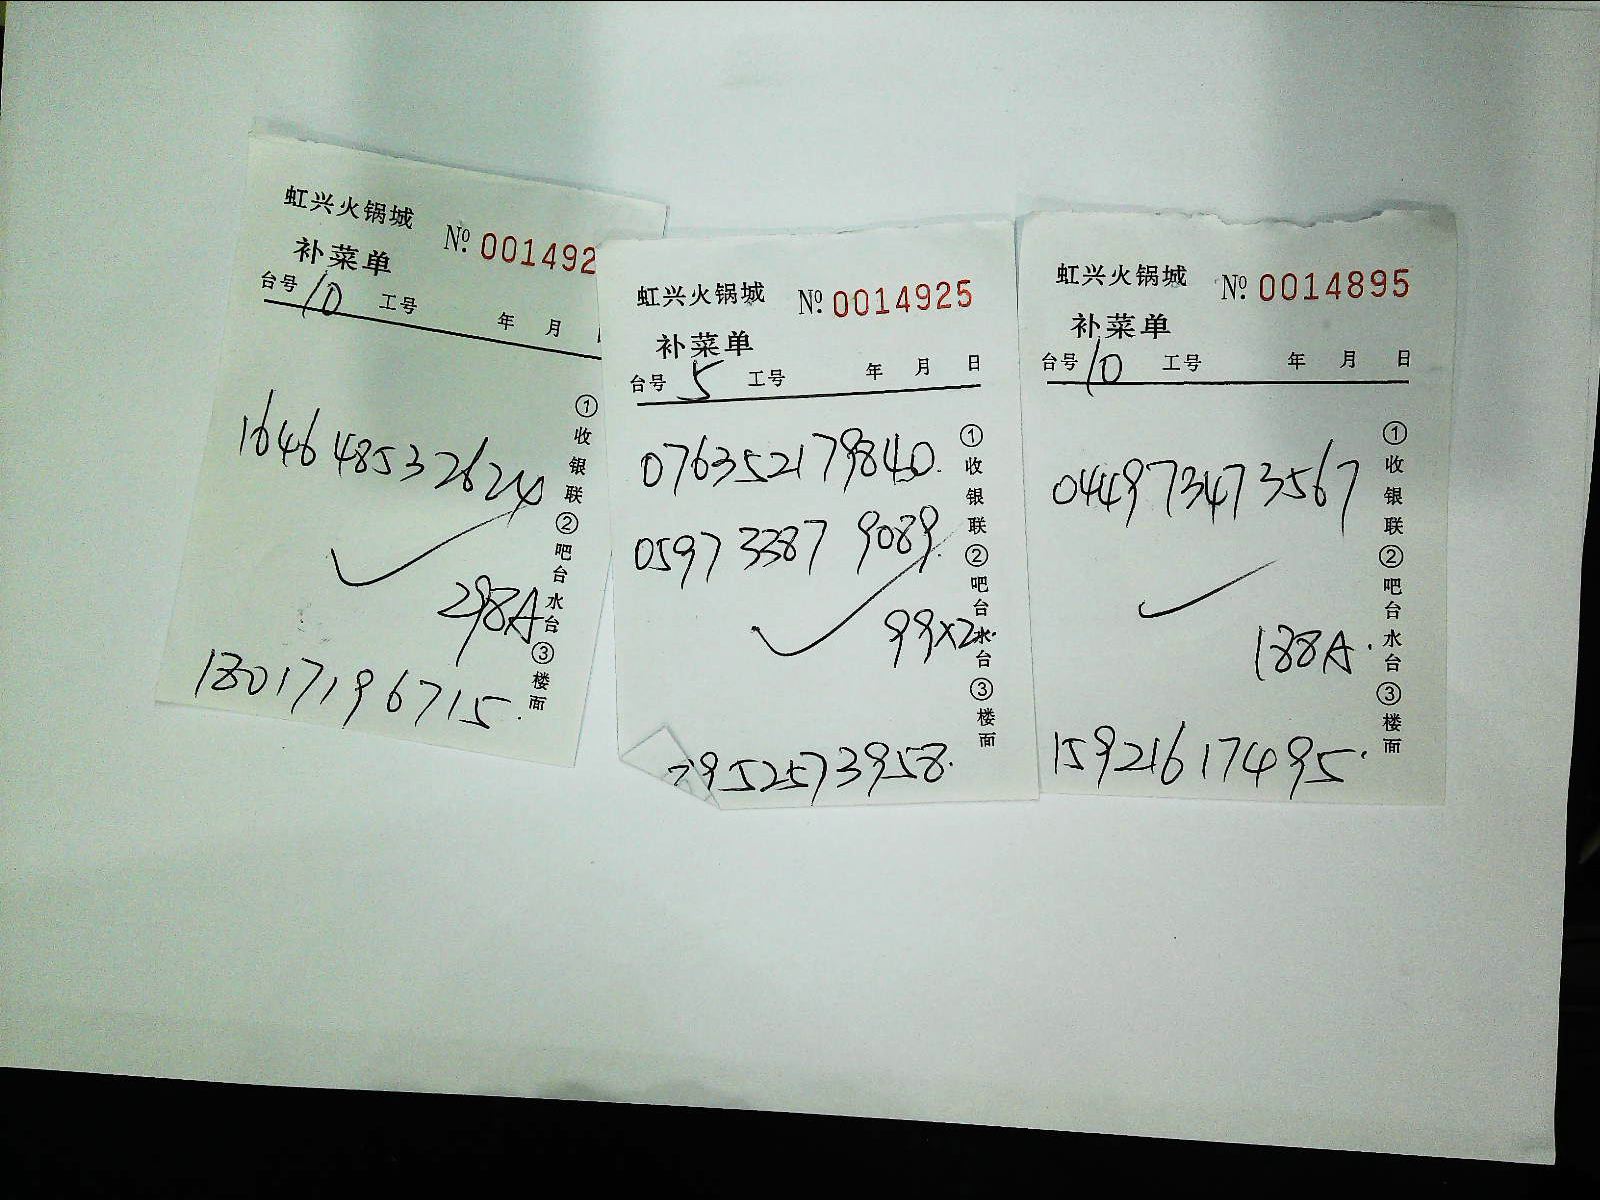 虹兴火锅城
补菜单
№ 001492
台号 10 工号 年 月
164648532624
298A
18017196715.
①收银联②吧台水台③楼面
虹兴火锅城
补菜单
№ 0014925
台号 5 工号 年 月 日
076352179840.
0597 3387 9089.
99x2.
7952573958.
①收银联②吧台水台③楼面
虹兴火锅城
补菜单
№ 0014895
台号 10 工号 年 月 日
044973473567
188A.
15921617495.
①收银联②吧台水台③楼面